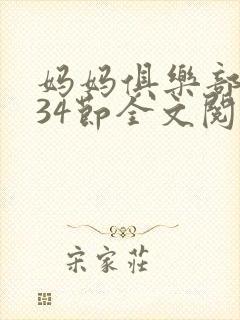 妈妈俱樂部
34節全文閱
宋家莊